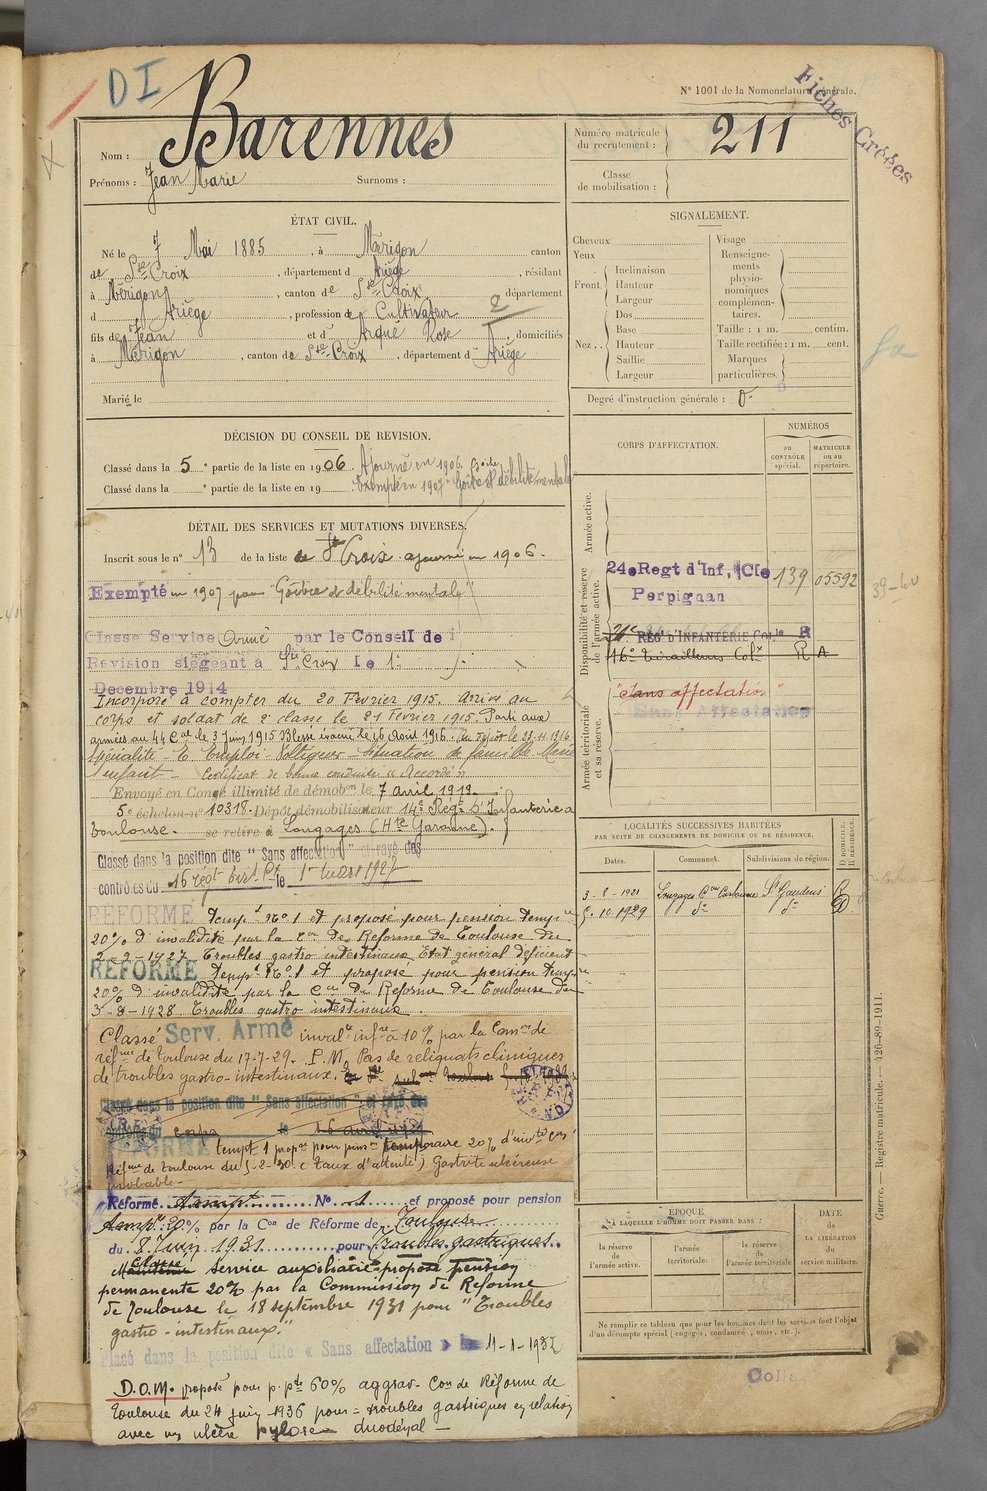 DI
Barennes
N° 1001 de la Nomenclature générale.
Fiches Créées
Nom :
Prénoms : Jean Marie Surnoms :
Numéro matricule du recrutement : 211
Classe de mobilisation :
ÉTAT CIVIL.
Né le 7 Mai 1885, à Mérigon canton
de Ste Croix, département d Ariège, résidant
à Mérigon, canton de Ste Croix, département
d Ariège, profession de Cultivateur
fils de Jean et d Arqué Rose, domiciliés
à Mérigon, canton de Ste Croix, département d Ariège
Marié le
SIGNALEMENT.
Cheveux
Yeux
Front. Inclinaison
Hauteur
Largeur
Nez.. Dos
Base
Hauteur
Saillie
Largeur
Visage
Renseignements physionomiques complémentaires.
Taille : 1 m. centim.
Taille rectifiée : 1 m. cent.
Marques particulières.
Degré d'instruction générale : 0.
DÉCISION DU CONSEIL DE REVISION.
Classé dans la 5e partie de la liste en 1906. Ajourné en 1906. Goitre
Classé dans la e partie de la liste en 19 . Exempté en 1907 Goitre et débilité mentale
DÉTAIL DES SERVICES ET MUTATIONS DIVERSES.
Inscrit sous le n° 13 de la liste de Ste Croix. ajourné en 1906.
Exempté en 1907 pour Goitre et débilité mentale
Classe Service Armé par le Conseil de
Revision siégeant à Ste Croix le 1er
Decembre 1914
Incorporé à compter du 20 Février 1915. Arrivé au
corps et soldat de 2e classe le 21 Février 1915. Parti aux
armées au 44 Cal le 3 Juin 1915 Blessé évacué le 16 Août 1916. Au dépôt le 23.11.1916.
Spécialité - E Emploi - Voltigeur - Situation de famille Marié
1 enfant - Certificat de bonne conduite Accordé
Envoyé en Congé illimité de démobon le 7 avril 1919.
5e échelon n° 10318. Dépôt démobilisateur 14e Régt d'Infanterie à
Toulouse. se retire à Longages (Hte Garonne).
Classé dans la position dite " Sans affectation " et rayé des
contrôles du 16 régt tirst Cx le 1er Mars 1927
REFORME tempt n° 1 et proposé pour pension tempre
20% d'invalidité par la Con De Reforme de Toulouse du
2-2-1927 Troubles gastro intestinaux Etat général déficient
REFORME tempt N° 1 et proposé pour pension tempre
20% d'invalidité par la Con de Réforme de Toulouse du
3-8-1928 Troubles gastro intestinaux.
Classé Serv. Armé invalté infre à 10% par la Comon de
réfme de Toulouse du 17-7-29. P.M. Pas de reliquats cliniques
de troubles gastro-intestinaux.
Classé dans la position dite " Sans affectation " et rayé des
contrôles du corps le 16 avril
REFORME tempt 1 propé pour pension temporaire 20% d'invté Con
réfme de Toulouse du 5-2-30. (Taux d'attente) Gastrite ulcéreuse
probable -
Réformé tempt N° 1 et proposé pour pension
tempre 20% par la Con de Réforme de Toulouse
du 8 Juin 1931 pour Troubles gastriques.
Classé service auxiliaire proposé pension
permanente 20% par la Commission de Reforme
de Toulouse le 18 septembre 1931 pour "Troubles
gastro-intestinaux."
Placé dans la position dite « Sans affectation » le 11-1-1932
D.O.M. proposé pour p.pte 60% aggrav- Con de Réforme de
Toulouse du 24 juin 1936 pour = troubles gastriques en relation
avec un ulcère pyloro duodénal -
CORPS D'AFFECTATION.
NUMÉROS
au CONTRÔLE spécial.
MATRICULE ou au répertoire.
Armée active.
Disponibilité et réserve de l'armée active.
24e Regt d'Inf. Cle 139 05592
Perpignan
REGt D'INFANTERIE Colle
16e Tirailleurs Colx R A
"Sans affectation"
Sans Affectation
Armée territoriale et sa réserve.
39-40
LOCALITÉS SUCCESSIVES HABITÉES
PAR SUITE DE CHANGEMENTS DE DOMICILE OU DE RÉSIDENCE.
Dates. Communes. Subdivisions de région. D DOMICILE, R RÉSIDENCE.
3-8-1921 Longages Con Carbonne St Gaudens R
5.10.1929 do do D
ÉPOQUE
À LAQUELLE L'HOMME DOIT PASSER DANS :
la réserve de l'armée active.
l'armée territoriale.
la réserve de l'armée territoriale
DATE de LA LIBÉRATION du service militaire.
Ne remplir ce tableau que pour les hommes dont les services font l'objet
d'un décompte spécial (engagés, condamnés, omis, etc.).
Guerre. — Registre matricule. — 426-89-1911.